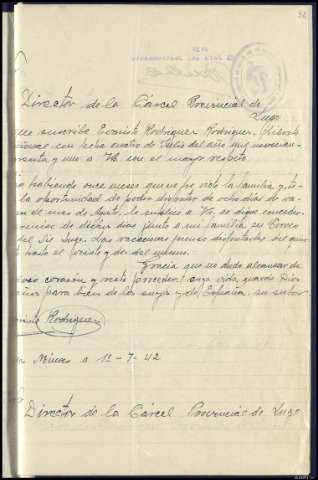 Director de la Cárcel Provincial de
Lugo
que suscribe Evaristo Rodriguez Rodriguez, liberto
cional con fecha cuatro de Julio del año mil novecien
renta y uno a Vd. con el mayor respeto
no habiendo once meses que no he visto la familia y te
la oportunidad de poder disfrutar de ocho dias de va
en el mes de Agosto, le suplico a Vd. se digne conceder
de dichos dias junto a mi familia en
del Sil Lugo. Las vacaciones pienso disfrutarlas del
hasta el veinte y dos del mismo.
Gracia que no dudo alcanzar de
doso corazón y recto proceder cuya vida guarde Dios
años para bien de los suyos y de España, su
Rodriguez
a 12-7-42
Director de la Cárcel Provincial de Lugo